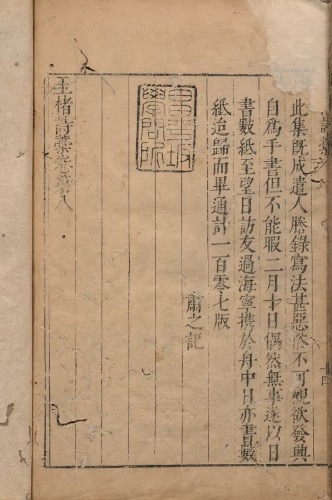 此集旣成遣人謄錄寫法甚惡俗不可觀欲發興
自爲手書但不能暇二月十日偶然無事遂以日
書數紙至望日訪友過海寧携於舟中日亦書數
紙迨歸而畢通計一百零七版
肅之記
昌平坂
學問所
玉楮詩藁卷第八